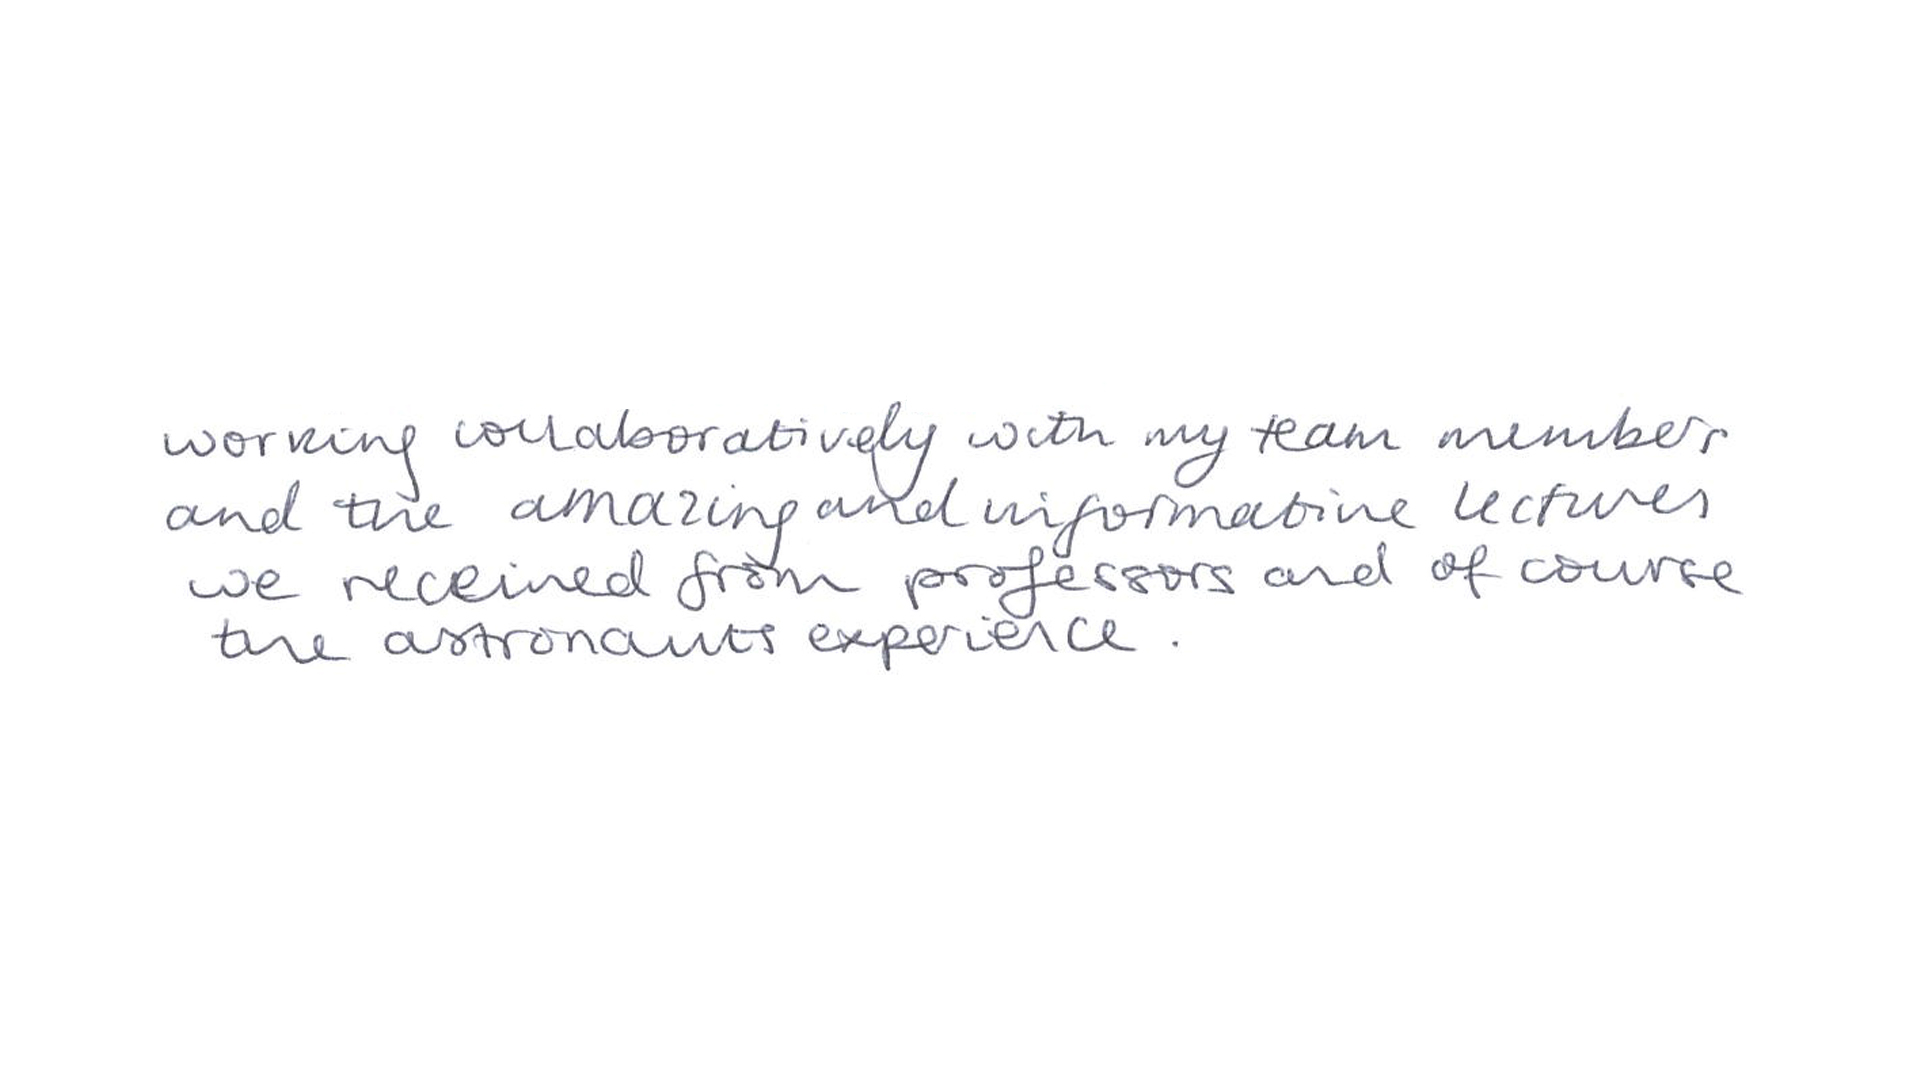 working collaboratively with my team member
and the amazing and informative lectures
we received from professors and of course
the astronauts experience.